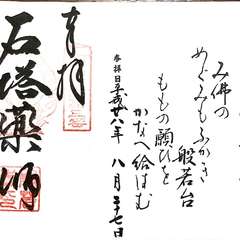 み佛の
めぐみもふかき
般若台
ももの願ひを
かなへ給はむ
参拝日平成廿八年 八月二十七日
奉拝
石塔薬師